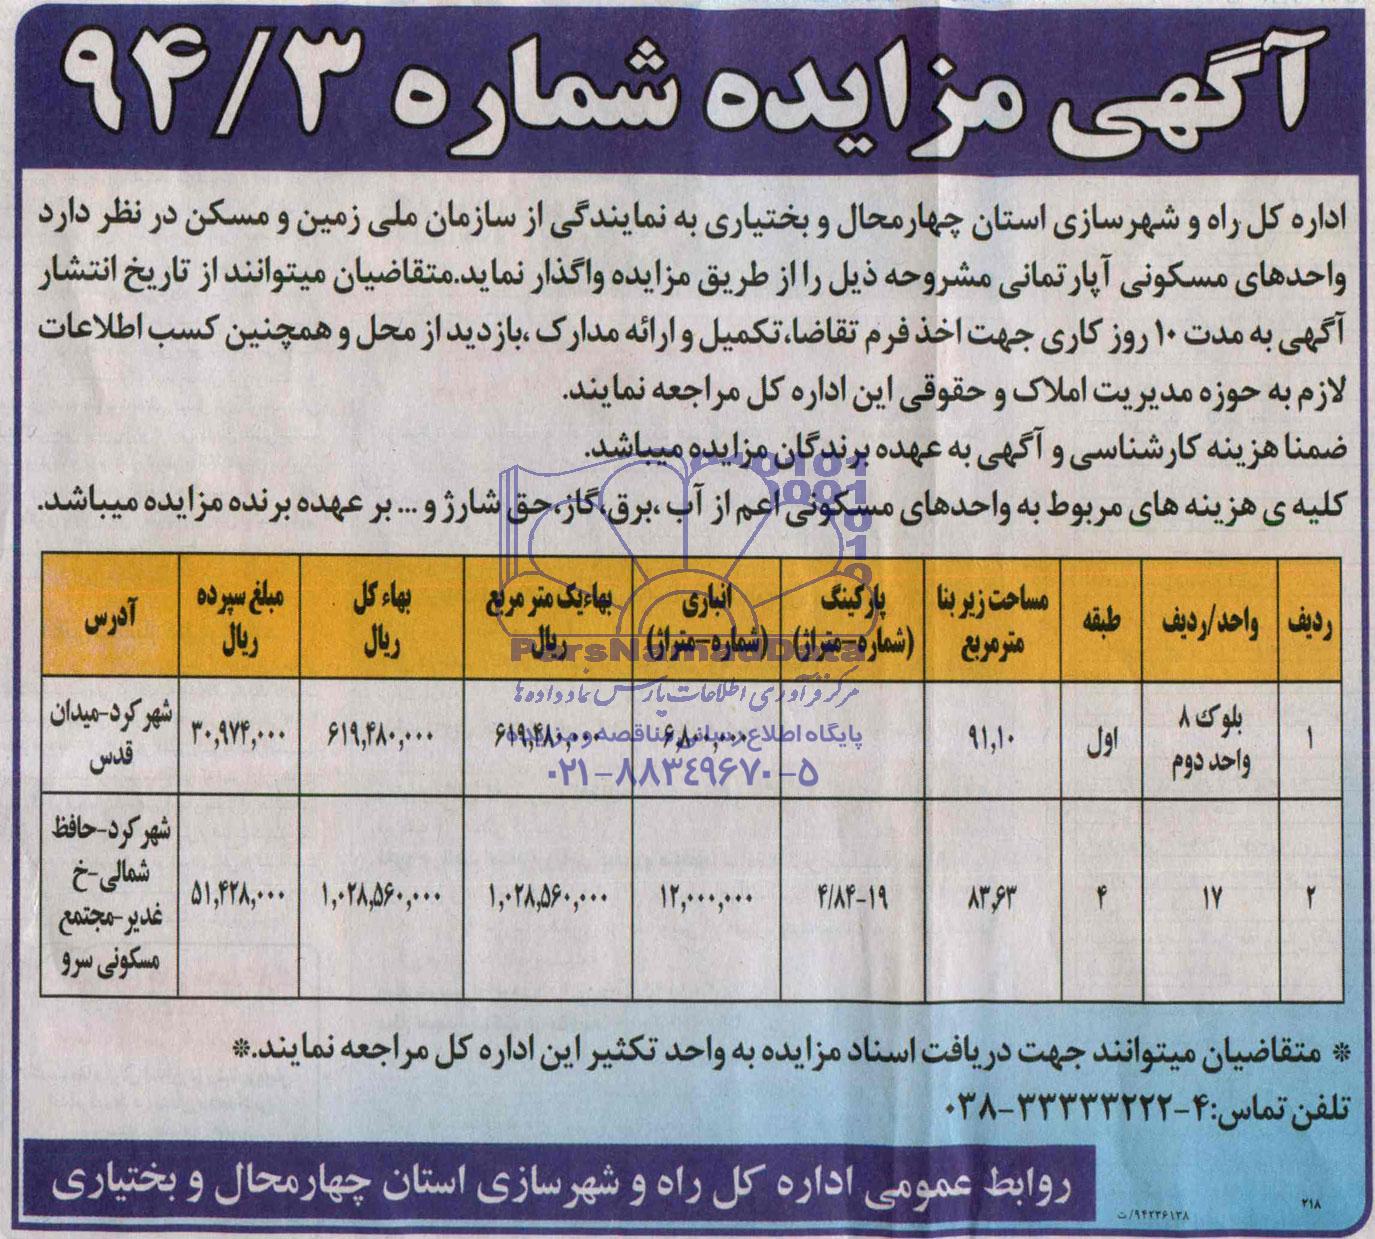 آگهی مزایده شماره ۹۴/۳
اداره کل راه و شهرسازی استان چهارمحال و بختیاری به نمایندگی از سازمان ملی زمین و مسکن در نظر دارد
واحدهای مسکونی آپارتمانی مشروحه ذیل را از طریق مزایده واگذار نماید.متقاضیان میتوانند از تاریخ انتشار
آگهی به مدت ۱۰ روز کاری جهت اخذ فرم تقاضا،تکمیل و ارائه مدارک ،بازدید از محل و همچنین کسب اطلاعات
لازم به حوزه مدیریت املاک و حقوقی این اداره کل مراجعه نمایند.
ضمنا هزینه کارشناسی و آگهی به عهده برندگان مزایده میباشد.
کلیه ی هزینه های مربوط به واحدهای مسکونی اعم از آب ،برق،گاز،حق شارژ و ... بر عهده برنده مزایده میباشد.
ردیف واحد/ردیف طبقه مساحت زیر بنا مترمربع پارکینگ (شماره-متراژ) انباری (شماره-متراژ) بهاءیک متر مربع ریال بهاء کل ریال مبلغ سپرده ریال آدرس
۱ بلوک ۸ واحد دوم اول ۹۱,۱۰ ۶,۸۰۰,۰۰۰ ۶۱۹,۴۸۰,۰۰۰ ۶۱۹,۴۸۰,۰۰۰ ۳۰,۹۷۴,۰۰۰ شهر کرد-میدان قدس
۲ ۱۷ ۴ ۸۳,۶۳ ۴/۸۴-۱۹ ۱۲,۰۰۰,۰۰۰ ۱,۰۲۸,۵۶۰,۰۰۰ ۱,۰۲۸,۵۶۰,۰۰۰ ۵۱,۴۲۸,۰۰۰ شهر کرد-حافظ شمالی-خ غدیر-مجتمع مسکونی سرو
ParsNamadData
مرکز فرآوری اطلاعات پارس نماد داده ها
پایگاه اطلاع رسانی مناقصه و مزایده
۰۲۱-۸۸۳۴۹۶۷۰-۵
* متقاضیان میتوانند جهت دریافت اسناد مزایده به واحد تکثیر این اداره کل مراجعه نمایند.*
تلفن تماس:۴-۳۳۳۳۳۲۲۲-۰۳۸
روابط عمومی اداره کل راه و شهرسازی استان چهارمحال و بختیاری
۹۴۲۳۶۱۳۸/ت
۲۱۸